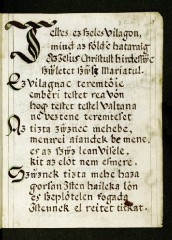 Telles ez szeles vilagon,
mind az földe hataraig
Jezesus Christust hirdessüc
születet szüsz Mariatul.
Ez vilagnac teremtöie
emberi testet rea vön
hogy testet testel valtana
ne vesztene teremtetet
Az tizta szüznec mehebe,
mennyei aiandek be mene,
es az szüz lean visele,
kit az elöt nem esmere.
Szüznek tizta mehe haza
gorsan Isten haileka lön
es szeplötelen fogada
Istennek el reitet titkat.